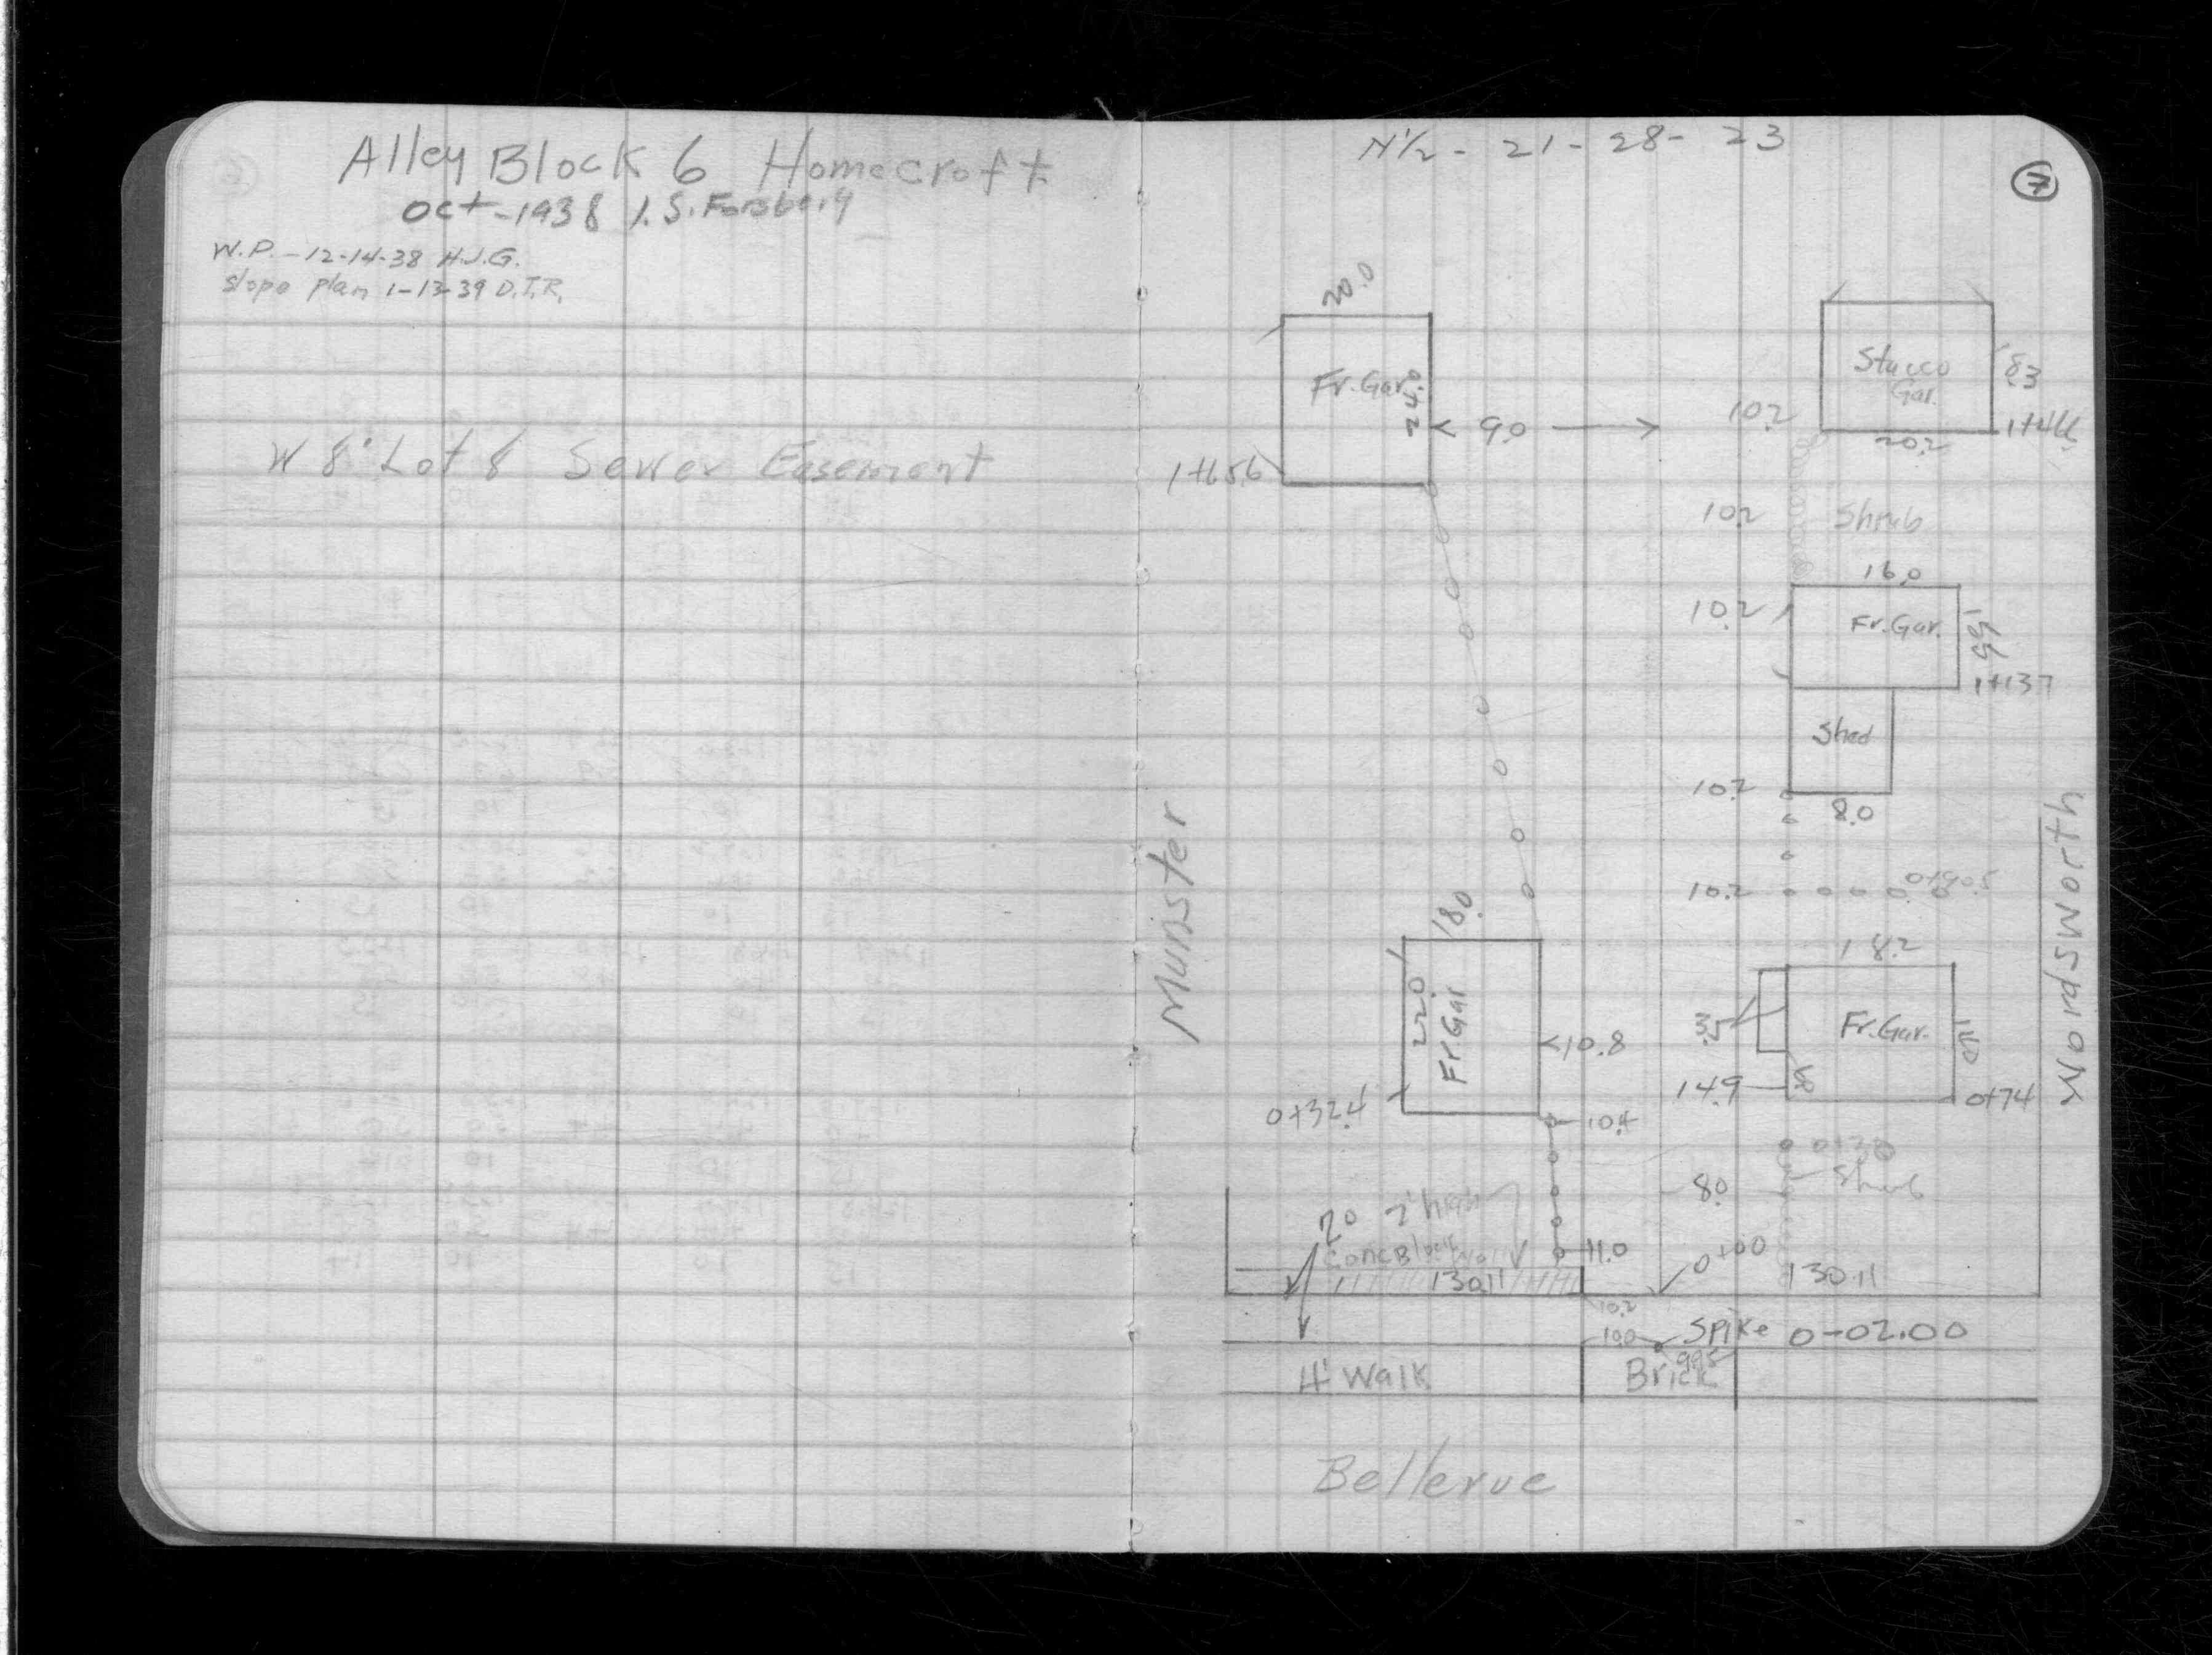 Alley Block 6 Homecroft
Oct-1938 J.S. Forsberg
W.P.-12-14-38 H.J.G.
slope plan 1-13-39 D.T.R.
W 8' Lot 8 Sewer Easement
N½- 21- 28- 23
7
20.0
Fr.Gar.
24.0
9.0
1+65.6
Stucco
Gar.
10.2
20.2
1+46.6
10.2
Shrub
16.0
10.2
Fr.Gar.
1+13.7
Shed
10.2
8.0
10.2
0+90.5
Munster
Wordsworth
18.0
22.0
Fr.Gar
10.8
0+32.4
10.4
18.2
3.5
Fr.Gar.
14.9
0+74
0+30
Shrub
8.0
2.0
2' high
Conc Block Wall
11.0
0+00
130.11
130.11
10.2
10.0
Spike 0-02.00
9.95
4' Walk
Brick
Bellevue